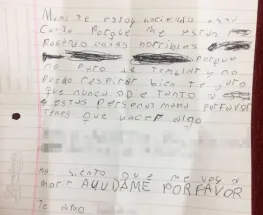 Mami te estoy haciendo esta
Carta Porque me están
cosas horribles
Porque
no Paro de temblar y no
Puedo respirar bien te juro
que nunca odie tanto a
estas Persenas mama PORFAVOR
tenes que hacer algo
siento que me voy a
morir AYUDAME POR FAVOR
Te amo